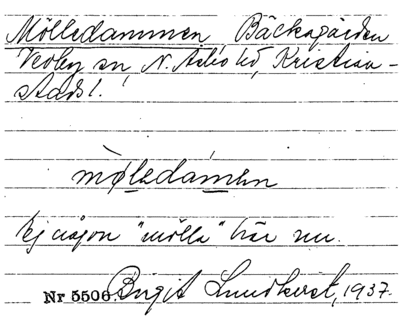 Mölledammen, Bäckagården
Verby sn, N. Åsbo hd, Kristian-
stads l.
mø̀ledámen
Ej någon "mölla" här nu.
Nr 5506. Birgit Lundkvist, 1937.